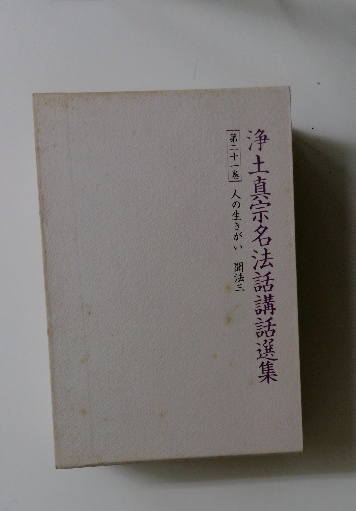 浄土真宗名法話講話選集
第二十一巻 人の生きがい 聞法三